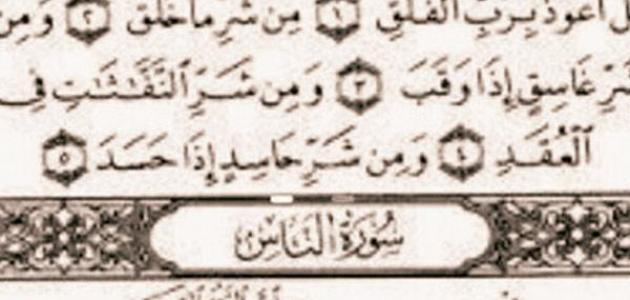 أَعُوذُ بِرَبِّ ٱلْفَلَقِ ١ مِن شَرِّ مَا خَلَقَ ٢ وَمِن
شَرِّ غَاسِقٍ إِذَا وَقَبَ ٣ وَمِن شَرِّ ٱلنَّفَّٰثَٰتِ فِى
ٱلْعُقَدِ ٤ وَمِن شَرِّ حَاسِدٍ إِذَا حَسَدَ ٥
سُورَةُ النَّاسِ